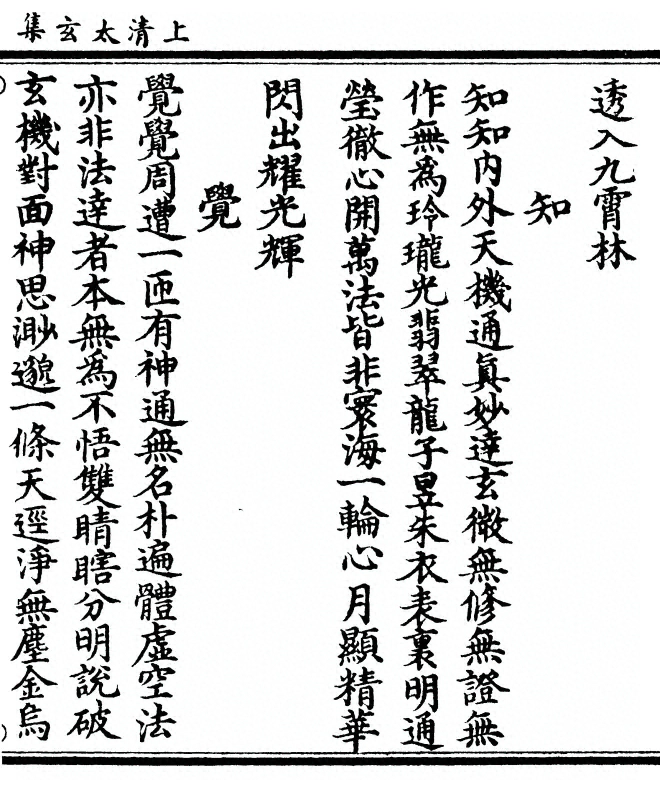 上清太玄集
透入九霄林
知
知知內外天機通真妙達玄微無修無證無
作無為玲瓏光翡翠龍子昱朱衣表裏明通
瑩徹心開萬法皆非寰海一輪心月顯精華
閃出耀光輝
覺
覺覺周遭一匝有神通無名朴遍體虛空法
亦非法達者本無為不悟雙睛瞎分明說破
玄機對面神思渺邈一條天逕淨無塵金烏